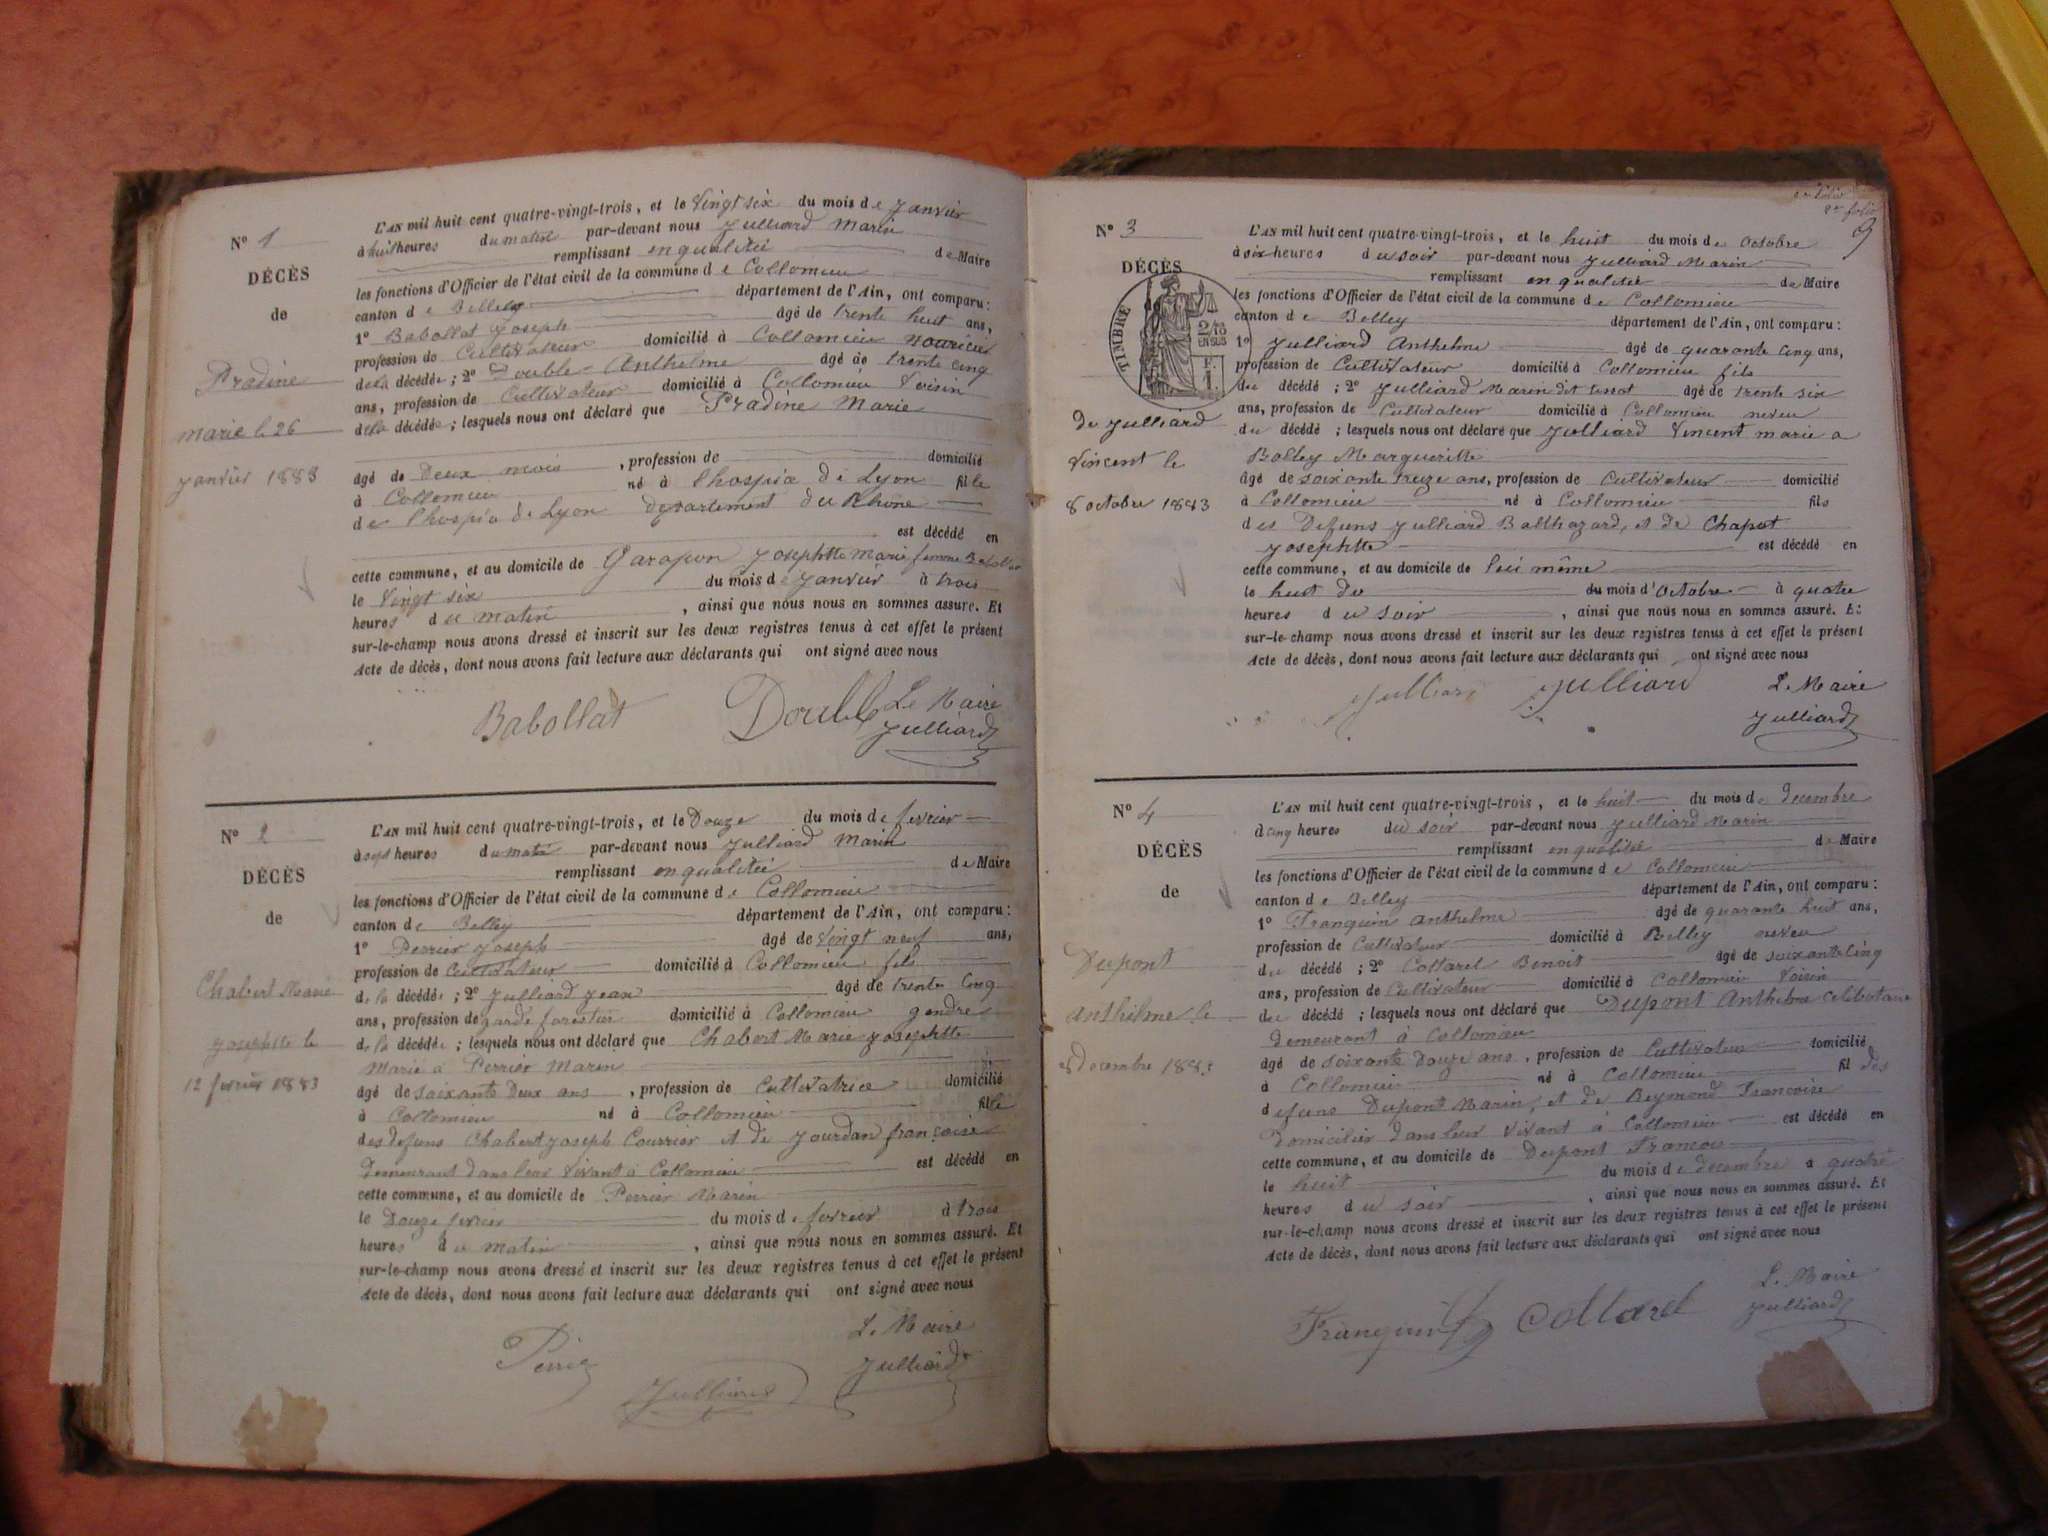 N° 1
DÉCÈS
de
Pradine
marie le 26
janvier 1883
L'AN mil huit cent quatre-vingt-trois, et le Vingt six du mois de janvier
à huit heures du matin par-devant nous Julliard Marin
remplissant en qualitée de Maire
les fonctions d'Officier de l'état civil de la commune de Collomieu
canton de Belley département de l'Ain, ont comparu:
1° Babollat Joseph âgé de trente huit ans,
profession de Cultivateur domicilié à Collomieu nouricier
de la décédée; 2° Double Anthelme âgé de trente cinq
ans, profession de Cultivateur domicilié à Collomieu Voisin
de la décédée; lesquels nous ont déclaré que Pradine Marie
âgé de Deux mois, profession de domicilié
à Collomieu né à l'hospice de Lyon fille
de l'hospice de Lyon département du Rhône
est décédé en
cette commune, et au domicile de Garapon Josephtte Marie femme Babollat
le Vingt six du mois de janvier à trois
heures du matin, ainsi que nous nous en sommes assuré. Et
sur-le-champ nous avons dressé et inscrit sur les deux registres tenus à cet effet le présent
Acte de décès, dont nous avons fait lecture aux déclarants qui ont signé avec nous
Babollat Double Le Maire
Julliard
N° 2
DÉCÈS
de
Chabert Marie
Josephtte le
12 fevrier 1883
L'AN mil huit cent quatre-vingt-trois, et le Douze du mois de fevrier
à sept heures du matin par-devant nous Julliard Marin
remplissant en qualitée de Maire
les fonctions d'Officier de l'état civil de la commune de Collomieu
canton de Belley département de l'Ain, ont comparu:
1° Perrier Joseph âgé de Vingt neuf ans,
profession de Cultivateur domicilié à Collomieu fils
de la décédée; 2° Julliard Jean âgé de trente Cinq
ans, profession de garde forestier domicilié à Collomieu gendre
de la décédée; lesquels nous ont déclaré que Chabert Marie Josephtte
Marie a Perrier Marin
âgé de soixante Deux ans, profession de Cultivatrice domicilié
à Collomieu né à Collomieu fille
des defuns Chabert Joseph Courrier et de Jourdan françoise
Demeurant dans leur Vivant à Collomieu est décédé en
cette commune, et au domicile de Perrier Marin
le Douze fevrier du mois de fevrier à trois
heures du matin, ainsi que nous nous en sommes assuré. Et
sur-le-champ nous avons dressé et inscrit sur les deux registres tenus à cet effet le présent
Acte de décès, dont nous avons fait lecture aux déclarants qui ont signé avec nous
Le Maire
Julliard Julliard
2e folio
9
N° 3
DÉCÈS
TIMBRE
2/10
EN SUS
F.
1.
de Julliard
Vincent le
8 octobre 1883
L'AN mil huit cent quatre-vingt-trois, et le huit du mois de octobre
à six heures du soir par-devant nous Julliard Marin
remplissant en qualitée de Maire
les fonctions d'Officier de l'état civil de la commune de Collomieu
canton de Belley département de l'Ain, ont comparu:
1° Julliard Anthelme âgé de quarante cinq ans,
profession de Cultivateur domicilié à Collomieu fils
du décédé; 2° Julliard Marin dit âgé de trente six
ans, profession de Cultivateur domicilié à Collomieu neveu
du décédé; lesquels nous ont déclaré que Julliard Vincent marie a
Margueritte
âgé de soixante treize ans, profession de Cultivateur domicilié
à Collomieu né à Collomieu fils
des Defuns Julliard Balthazard, et de Chaput
Josephtte est décédé en
cette commune, et au domicile de lui même
le huit du du mois d'Octobre à quatre
heures du soir, ainsi que nous nous en sommes assuré. Et
sur-le-champ nous avons dressé et inscrit sur les deux registres tenus à cet effet le présent
Acte de décès, dont nous avons fait lecture aux déclarants qui ont signé avec nous
Julliard Julliard Le Maire
Julliard
N° 4
DÉCÈS
de
Dupont
anthelme le
8 Decembre 1883
L'AN mil huit cent quatre-vingt-trois, et le huit du mois de decembre
à cinq heures du soir par-devant nous Julliard Marin
remplissant en qualitée de Maire
les fonctions d'Officier de l'état civil de la commune de Collomieu
canton de Belley département de l'Ain, ont comparu:
1° Franquin anthelme âgé de quarante huit ans,
profession de Cultivateur domicilié à Belley neveu
du décédé; 2° Cottarel Benoit âgé de soixante Cinq
ans, profession de Cultivateur domicilié à Collomieu Voisin
du décédé; lesquels nous ont déclaré que Dupont Anthelme celibataire
demeurant à Collomieu
âgé de soixante Douze ans, profession de Cultivateur domicilié
à Collomieu né à Collomieu fils des
defuns Dupont Marin, et de Reymond Françoise
Domicilier dans leur vivant à Collomieu est décédé en
cette commune, et au domicile de Dupont Francois
le huit du mois de decembre à quatre
heures du soir, ainsi que nous nous en sommes assuré. Et
sur-le-champ nous avons dressé et inscrit sur les deux registres tenus à cet effet le présent
Acte de décès, dont nous avons fait lecture aux déclarants qui ont signé avec nous
Franquin Cottarel Le Maire
Julliard